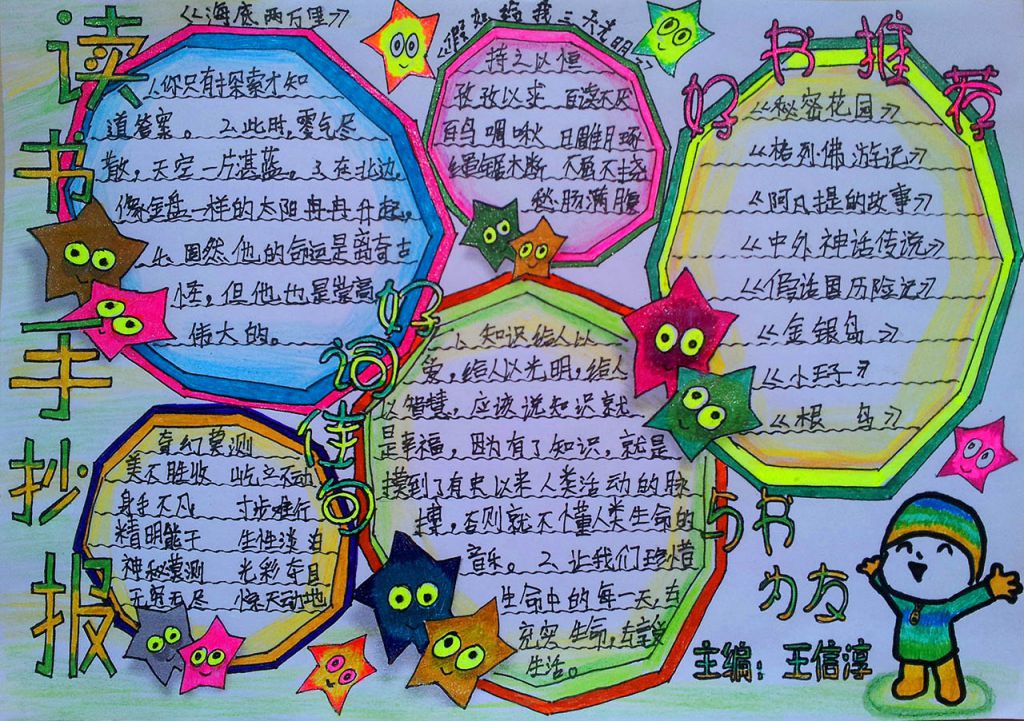 读书手抄报
《海底两万里》
1、你只有探索才知
道答案。2、此时,雾气尽
散,天空一片湛蓝。3、在北边,
像金盘一样的太阳冉冉升起,
4、固然他的命运是离奇古
怪,但他也是崇高,
伟大的。
《假如给我三天光明》
持之以恒
孜孜以求 百读不厌
百鸟啁啾 日雕月琢
不屈不挠
愁肠满腹
好书推荐
《秘密花园》
《格列佛游记》
《阿凡提的故事》
《中外神话传说》
《假话国历险记》
《金银岛》
《小王子》
《根鸟》
好词佳句
奇幻莫测
美不胜收 屹立不动
身手不凡 寸步难行
精明能干 生性淡泊
神秘莫测 光彩夺目
无穷无尽 惊天动地
1、知识给人以
爱,给人以光明,给人
以智慧,应该说知识就
是幸福,因为有了知识,就是
摸到了有史以来人类活动的脉
搏,否则就不懂人类生命的
音乐。2、让我们珍惜
生命中的每一天,去
充实生命,去享受
生活。
与书
为友
主编:王信淳